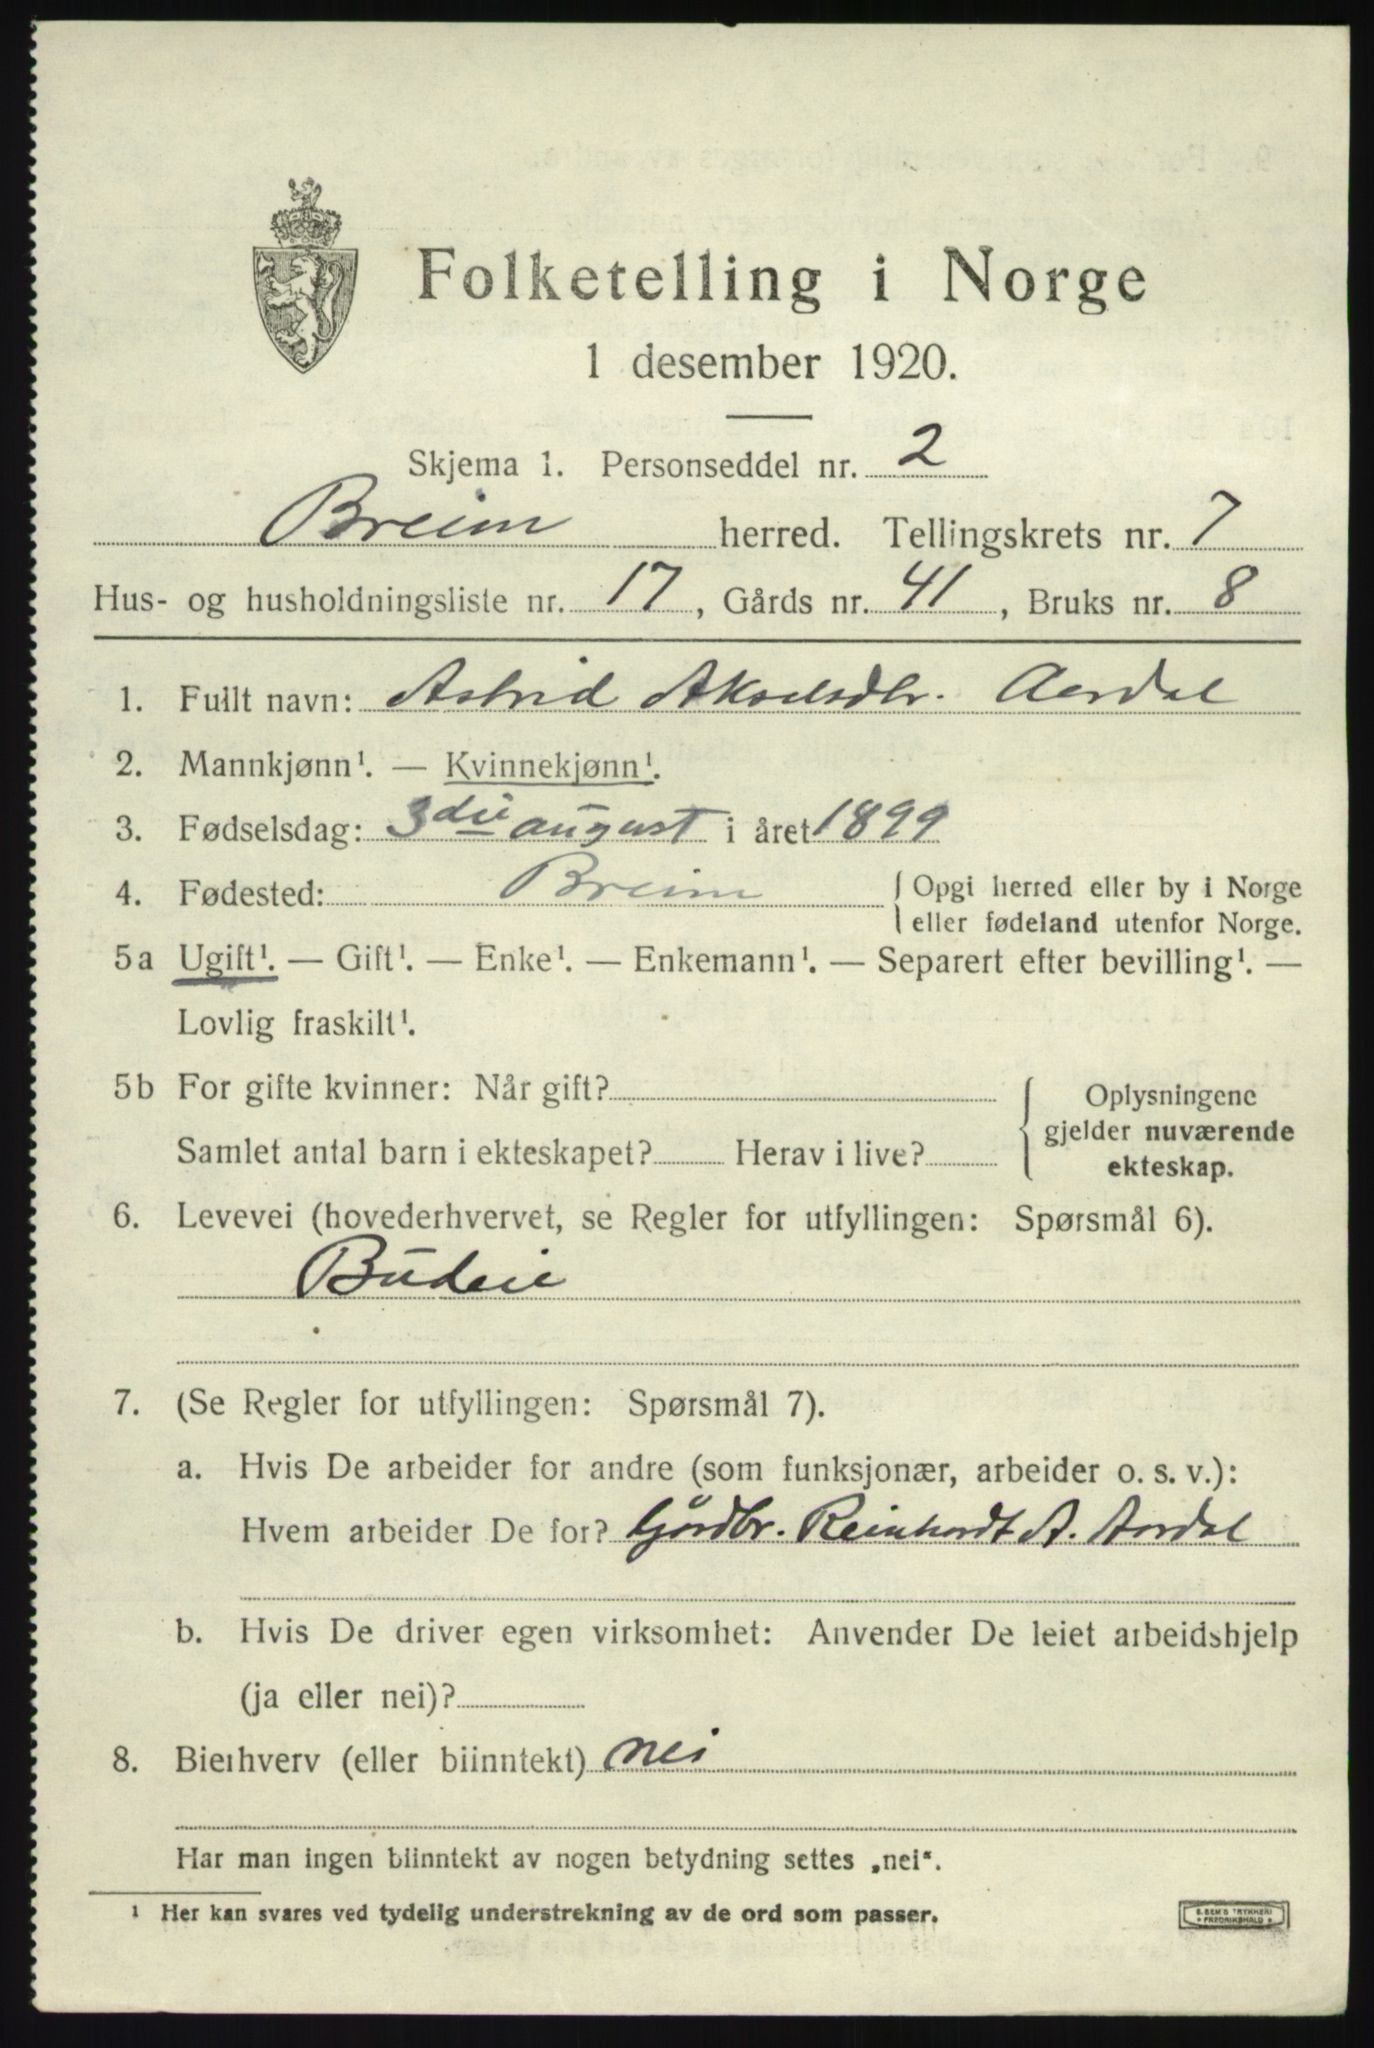 Folketelling i Norge
1 desember 1920.
Skjema 1. Personseddel nr. 2
Breim herred. Tellingskrets nr. 7
Hus- og husholdningsliste nr. 17, Gårds nr. 41, Bruks nr. 8
1. Fullt navn: Astrid Aardal
2. Mannkjønn¹. — Kvinnekjønn¹.
3. Fødselsdag: 3die august i året 1899
4. Fødested: Breim { Opgi herred eller by i Norge
eller fødeland utenfor Norge.
5a Ugift¹. — Gift¹. — Enke¹. — Enkemann¹. — Separert efter bevilling¹. —
Lovlig fraskilt¹.
5b For gifte kvinner: Når gift?
Samlet antal barn i ekteskapet? Herav i live?
{ Oplysningene
gjelder nuværende
ekteskap.
6. Levevei (hovederhvervet, se Regler for utfyllingen: Spørsmål 6).
Budeie
7. (Se Regler for utfyllingen: Spørsmål 7).
a. Hvis De arbeider for andre (som funksjonær, arbeider o. s. v.):
Hvem arbeider De for? Gårdbr. Reinhardt A. Aardal
b. Hvis De driver egen virksomhet: Anvender De leiet arbeidshjelp
(ja eller nei)?
8. Bierhverv (eller biinntekt) nei
Har man ingen biinntekt av nogen betydning settes „nei“.
¹ Her kan svares ved tydelig understrekning av de ord som passer.
E. SEM'S TRYKKERI
* FREDRIKSHALD *